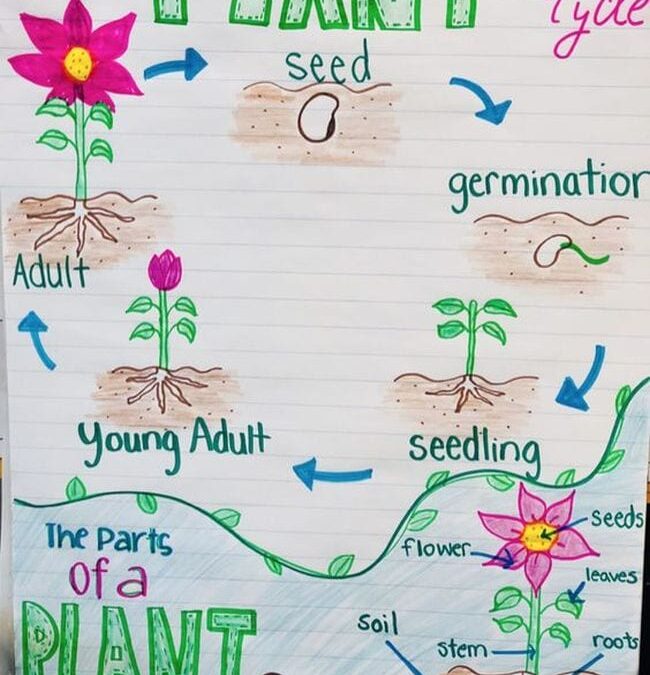 PLANT
Cycle
seed
germination
Adult
young Adult
seedling
The Parts
of a
PLANT
seeds
flower
leaves
soil
stem
roots